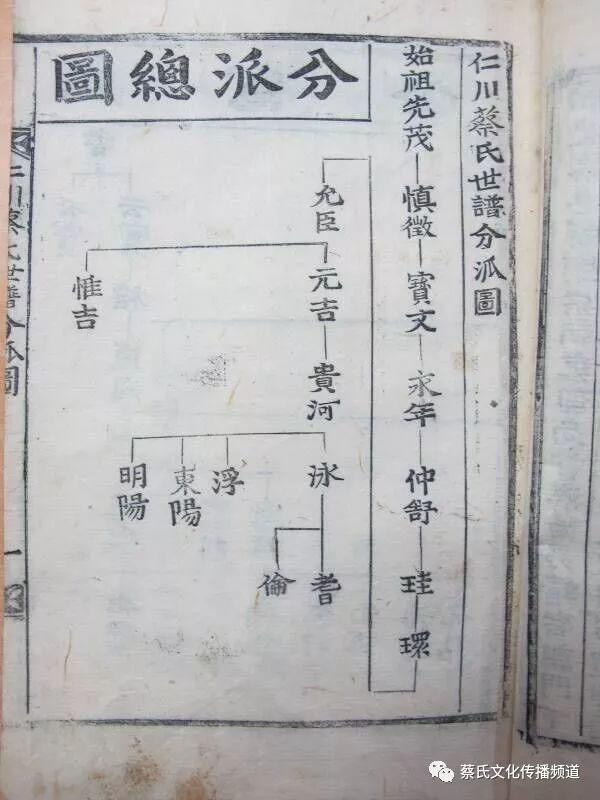 仁川蔡氏世譜分派圖
始祖先茂 慎徵 寶文 永年 仲舒 珪 環
分派總圖
允臣 元吉 貴河 泳 耆
惟吉
浮
東陽
明陽
倫
仁川蔡氏世譜分派圖
一
蔡氏文化传播频道